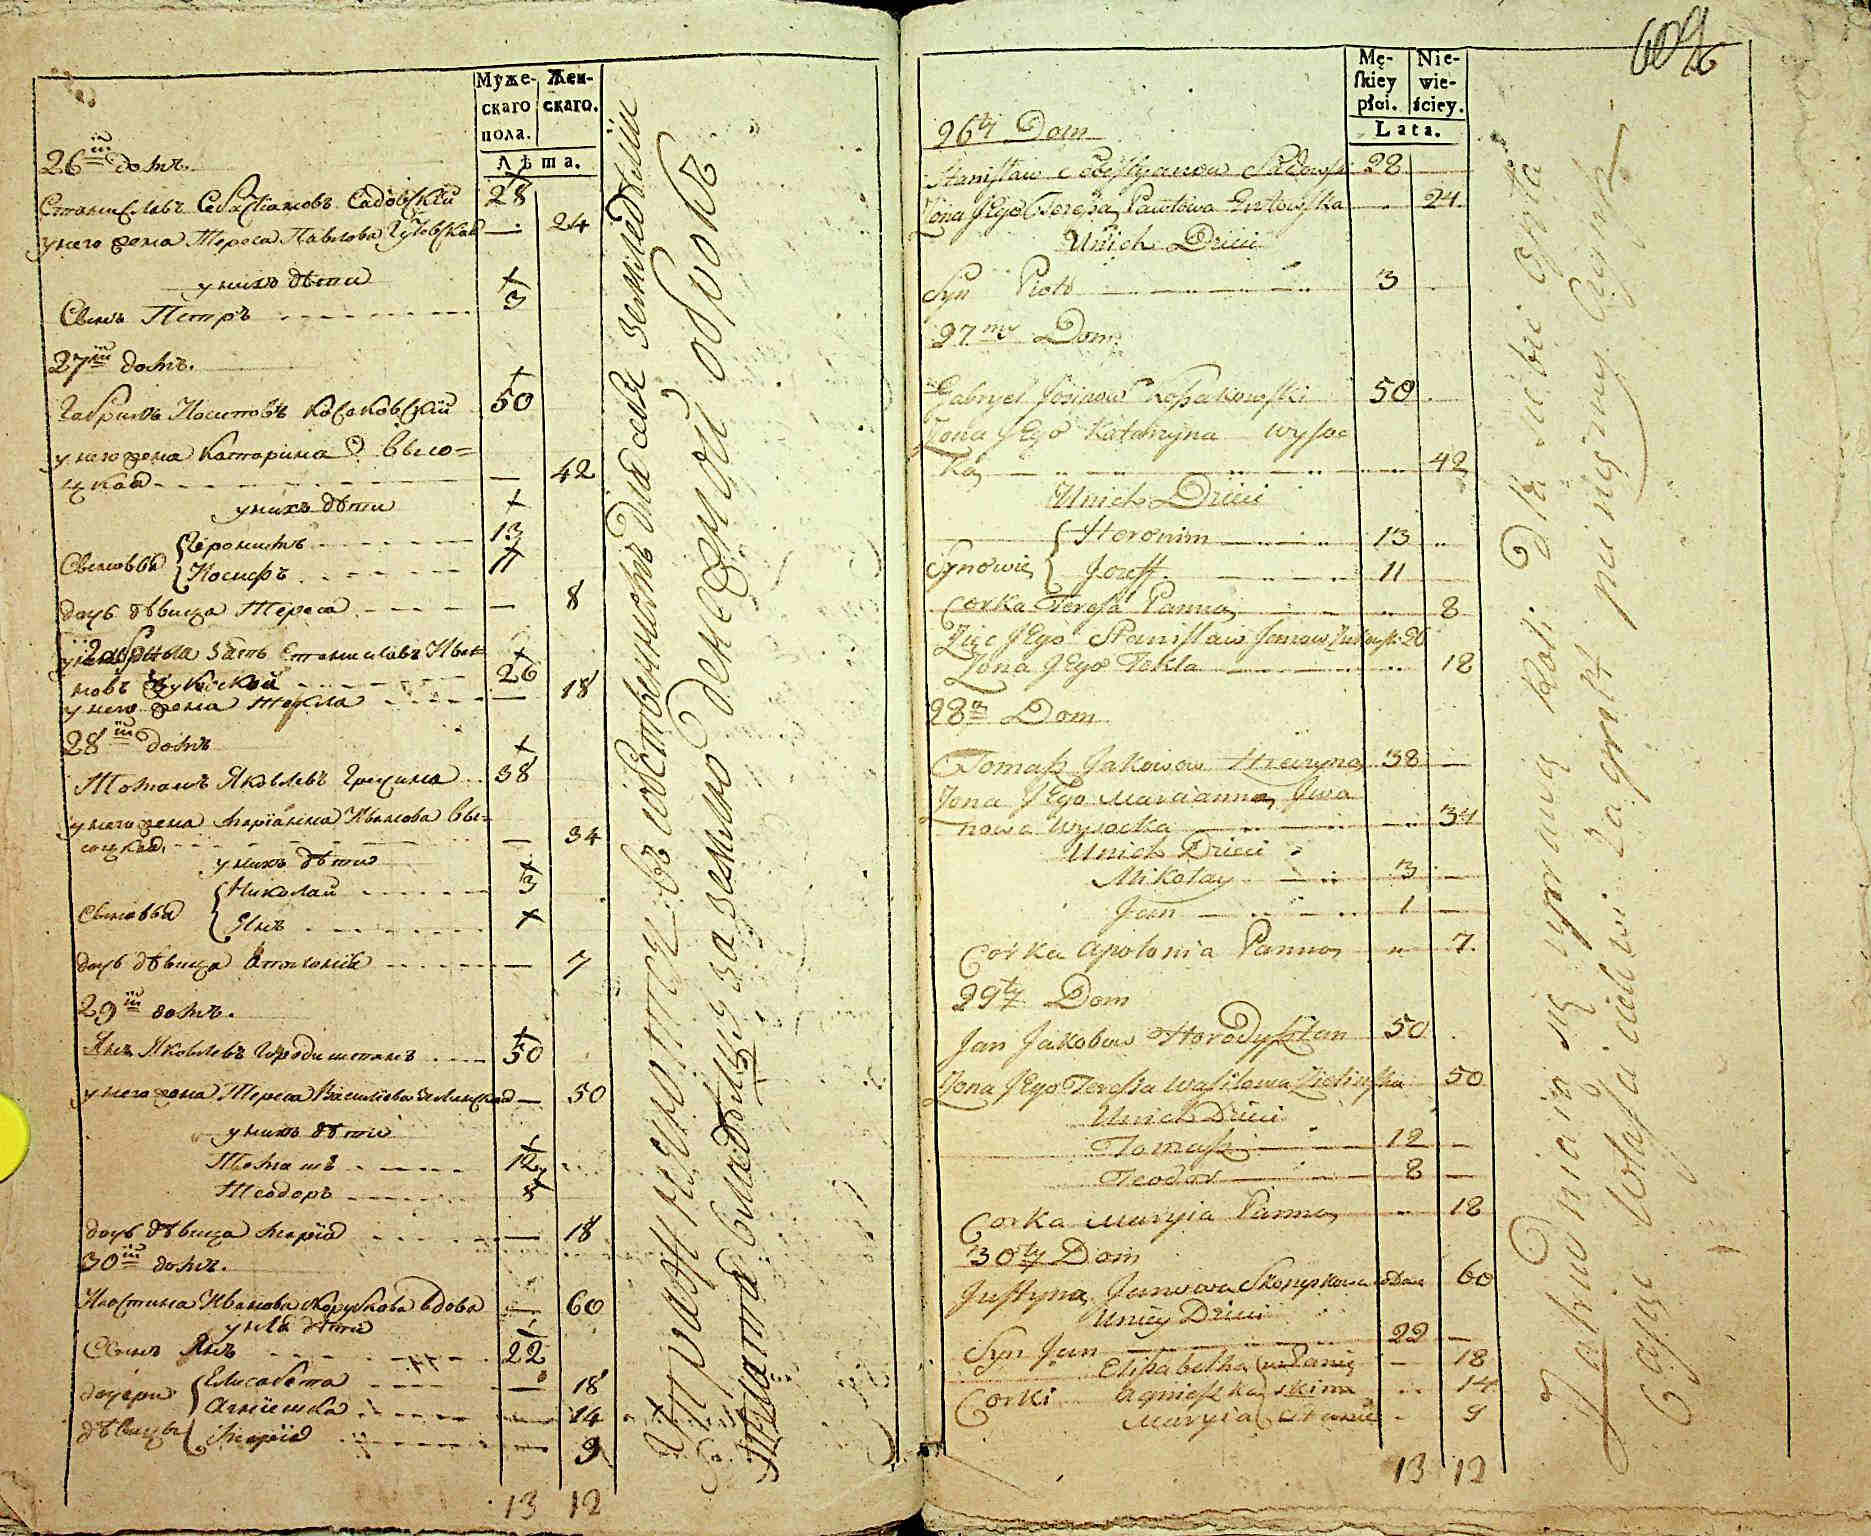 Муже-
скаго
пола.
Жен-
скаго.
Лѣта.
26 ій домъ.
Станиславъ Себастіановъ Садовскій 28
у него жена Тереса Павлова Гутовская — 24
у нихъ дѣти
Сынъ Петръ 3
27 ій домъ.
Габріель Іосиповъ Косаковскій 50
у него жена Катарина Высо=
цкая — 42
у нихъ дѣти
Сыновья Іеронимъ 13
Іосифъ 11
дочь дѣвица Тереса — 8
Габріеля зять Станиславъ Ива=
новъ 26
у него жена Текла — 18
28 ій домъ
Томашъ Яковлевъ Грецина 38
у него жена Маріанна Иванова Вы=
соцкая — 34
у нихъ дѣти
Сыновья Николай 3
Янъ
дочь дѣвица Аполонія — 7
29 ій домъ.
Янъ Яковлевъ Городыштанъ 50
у него жена Тереса Василіева Зелинская — 50
у нихъ дѣти
Томашъ 12
Теодоръ 8
дочь дѣвица Марія — 18
30 ій домъ.
Иостина Иванова Скорупкова вдова — 60
у ней дѣти
Сынъ Янъ 22
дочери Елисабета — 18
Агніешка — 14
дѣвицы Марія — 9
13 12
Упражняются въ собственномъ для себя земледѣліи
Платя владѣльцу за землю денежной оброкъ
609
Mę-
skiey
płci.
Nie-
wie-
ściey.
Lata.
26ty Dom
Stanisław Sebestyanow Sadowski 28
Zona Jego Teressa Pawłowa Gutowska 24
Unich Dzieci
Syn Piotr 3
27my Dom
Gabryel Josipow Kossakowski 50
Zona Jego Katarzyna Wysoc
ka 42
Unich Dzieci
Synowie Heronim 13
Jozeff 11
Corka Teressa Panna 8
Zięc Jego Stanisław Janow 26
Zona Jego Tekla 18
28y Dom
Tomasz Jakowow Hrecyna 38
Zona Jego Marcianna Iwa
nowa Wysocka 34
Unich Dzieci
Mikołay 3
Jan 1
Corka Apolonia Panna 7
29ty Dom
Jan Jakobow Horodysztan 50
Zona Jego Teressa Wasilowa Zielinska 50
Unich Dzieci
Tomasz 12
Teodor 8
Corka Maryia Panna 18
30ty Dom
Justyna Janowa Skorupkowa wdowa 60
Uniey Dzieci
Syn Jan 22
Elisabetha 18
Corki Agnieszka 14
Maryia 9
13 12
Zatrudniaią się uprawą Roli dla siebie opłа
caąc Włascicielowi za grunt pieniężny czynsz